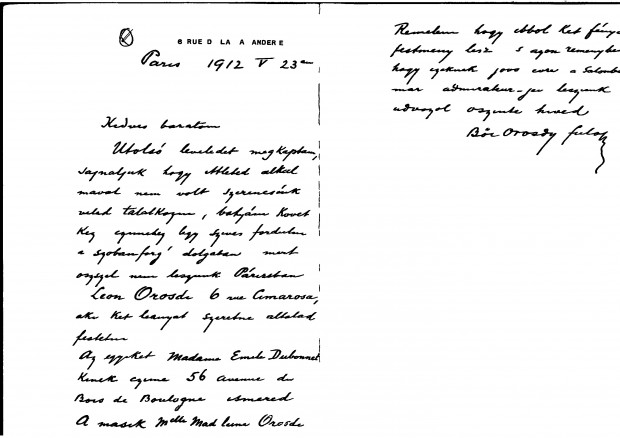 6 RUE D LA A ANDERE
Paris 1912 V 23 an
Kedves baratom
Utolsó leveledet megkaptam,
sajnaljuk hogy ittleted alkal
maval nem volt szerencsénk
veled találkozni, batyám Kovet
Kez ugy szives fordulni
a szobanforgó dolgaban mert
oszszel nem leszunk Párisban
Leon Orosdi 6 rue Cimarosa,
aki Ket leanyat szeretne altalad
festetni
Az egyiket Madame Emile Dubonnet
Kinek czime 56 avenue du
Bois de Boulogne ismered
A masik Melle Madleine Orosdi
Remelem hogy ebbol Ket
festmeny lesz s azon remenyben
hogy ezeknek jovo evre a Salonba
mar admirateur-jei leszunk
udvozol oszinte hived
Bőc Orosdy fulop